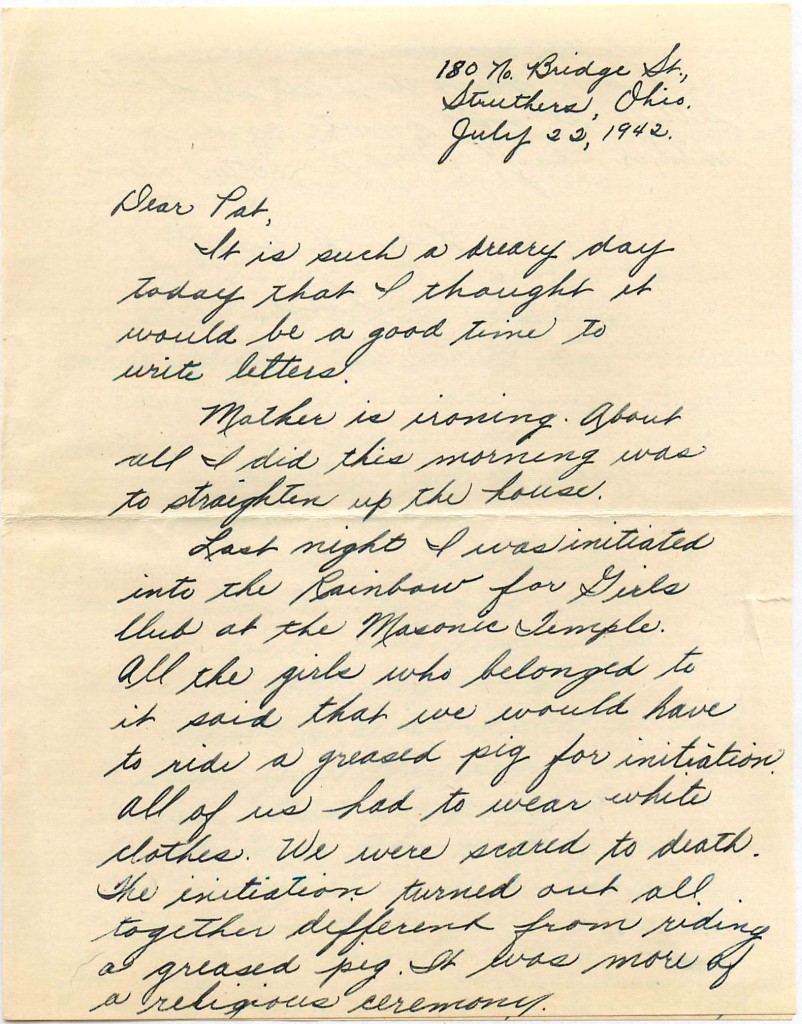 180 No. Bridge St.,
Struthers, Ohio.
July 22, 1942.
Dear Pat,
It is such a dreary day
today that I thought it
would be a good time to
write letters.
Mother is ironing. About
all I did this morning was
to straighten up the house.
Last night I was initiated
into the Rainbow for Girls
Club at the Masonic Temple.
All the girls who belonged to
it said that we would have
to ride a greased pig for initiation.
All of us had to wear white
clothes. We were scared to death.
The initiation turned out all
together different from riding
a greased pig. It was more of
a religious ceremony.